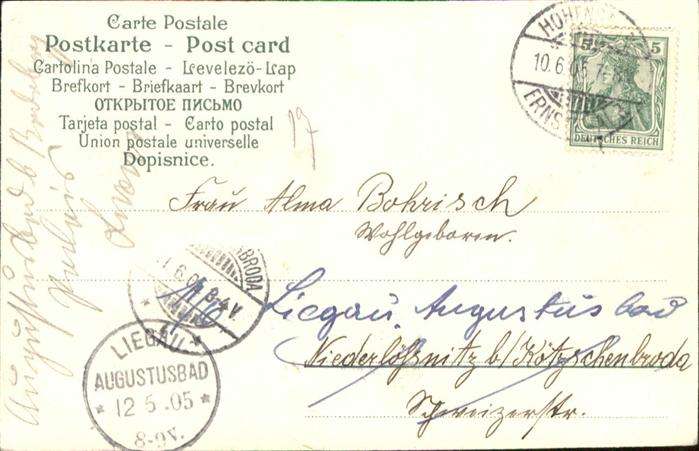 Carte Postale
Postkarte - Post card
Cartolina Postale - Levelezö-Lap
Brefkort - Briefkaart - Brevkort
ОТКРЫТОЕ ПИСЬМО
Tarjeta postal - Carto postal
Union postale universelle
Dopisnice.
HOHEN
10.6.05.7
ERNST
5
DEUTSCHES REICH
Frau Alma Bohrisch
Wohlgeboren.
BRODA
Liegau, Augustusbad
Niederlößnitz b/Kötzschenbroda
Schweizerstr.
LIEGAU
AUGUSTUSBAD
* 12 5 .05 *
8-9V.